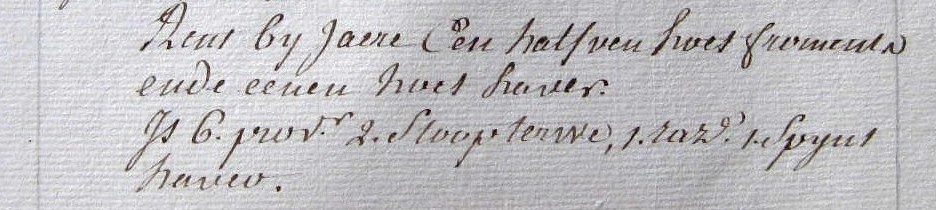 Rent by Jaere Een halfven hoet froments
ende eenen hoet haver.
Js 6. prov.r 2. Stoop terwe, 1. raz.e 1. Spynt
haver.